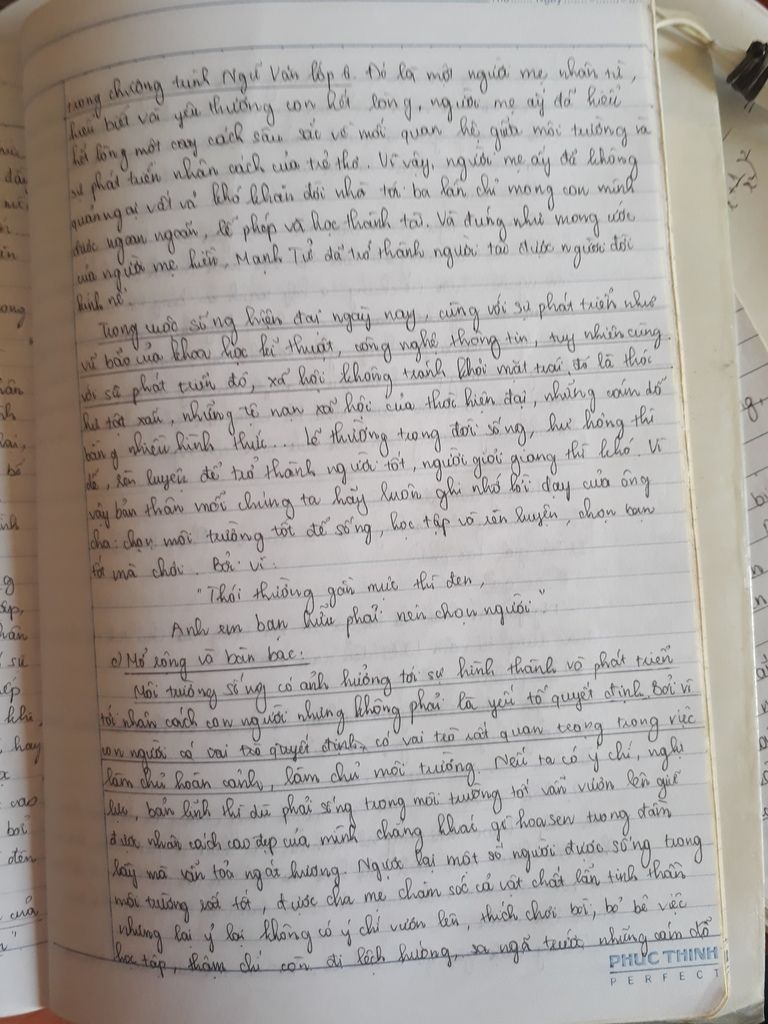 trong chương trình Ngữ Văn lớp 6. Đó là một người mẹ nhân từ,
hiểu biết và yêu thương con hết lòng, người mẹ ấy đã hiểu
hết lòng một cay cách sâu sắc về mối quan hệ giữa môi trường và
sự phát triển nhân cách của trẻ thơ. Vì vậy, người mẹ ấy đã không
quản ngại vất vả khó khăn dời nhà tới ba lần chỉ mong con mình
được ngoan ngoãn, lễ phép và học thành tài. Và đúng như mong ước
của người mẹ hiền, Mạnh Tử đã trở thành người tài được người đời
kính nể.
Trong cuộc sống hiện đại ngày nay, cùng với sự phát triển như
vũ bão của khoa học kĩ thuật, công nghệ thông tin, tuy nhiên cùng
với sự phát triển đó, xã hội không tránh khỏi mặt trái, đó là thói
hư tật xấu, những tệ nạn xã hội của thời hiện đại, những cám dỗ
bằng nhiều hình thức... Lẽ thường trong đời sống, hư hỏng thì
dễ, rèn luyện để trở thành người tốt, người giỏi giang thì khó. Vì
vậy bản thân mỗi chúng ta hãy luôn ghi nhớ lời dạy của ông
cha: chọn môi trường tốt để sống, học tập và rèn luyện, chọn bạn
tốt mà chơi. Bởi vì:
"Thói thường gần mực thì đen,
Anh em bạn hữu phải nên chọn người"
c) Mở rộng và bàn bạc:
Môi trường sống có ảnh hưởng tới sự hình thành và phát triển
tới nhân cách con người nhưng không phải là yếu tố quyết định. Bởi vì
con người có vai trò quyết định, có vai trò rất quan trọng trong việc
làm chủ hoàn cảnh, làm chủ môi trường. Nếu ta có ý chí, nghị
lực, bản lĩnh thì dù phải sống trong môi trường tốt vẫn vươn lên giữ
được nhân cách cao đẹp của mình chẳng khác gì hoa sen trong đầm
lầy mà vẫn toả ngát hương. Ngược lại một số người được sống trong
môi trường rất tốt, được cha mẹ chăm sóc cả vật chất lẫn tinh thần
nhưng lại ỷ lại không có ý chí vươn lên, thích chơi bời, bỏ bê việc
học tập, thậm chí còn đi lệch hướng, sa ngã trước những cám dỗ
PHUC THINH
PERFECT